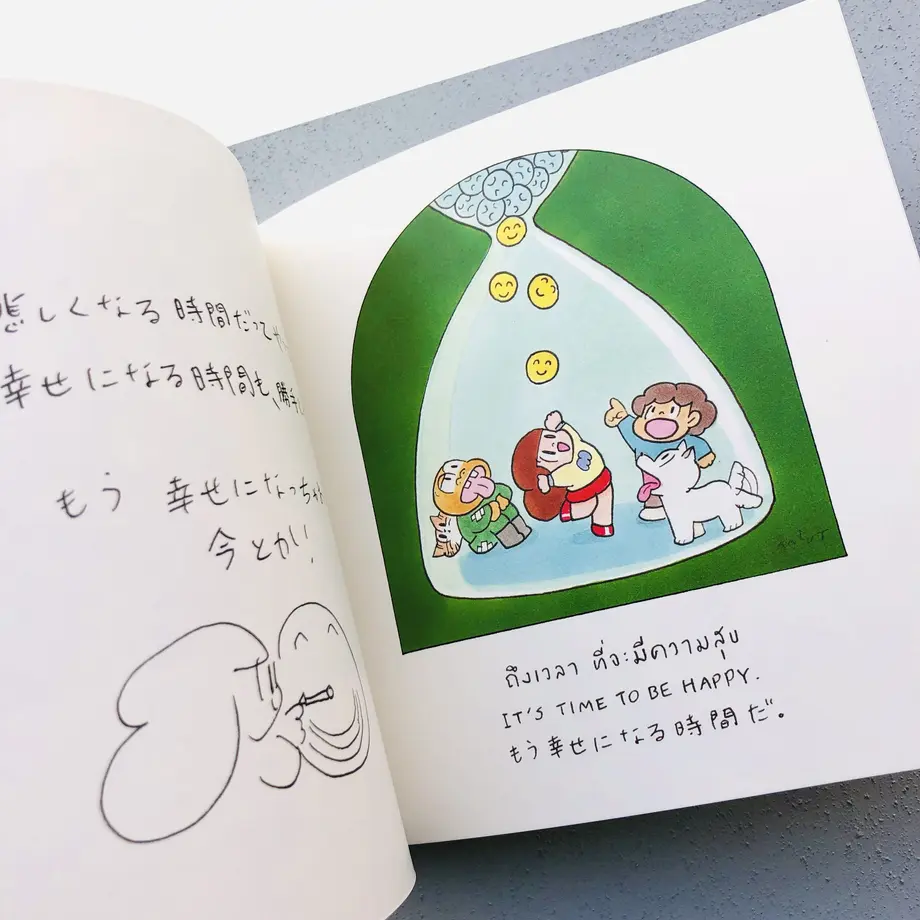 悲しくなる時間だって
幸せになる時間も、勝手
もう 幸せになっちゃ
今とか!
ถึงเวลา ที่จะมีความสุข
IT'S TIME TO BE HAPPY.
もう幸せになる時間だ。